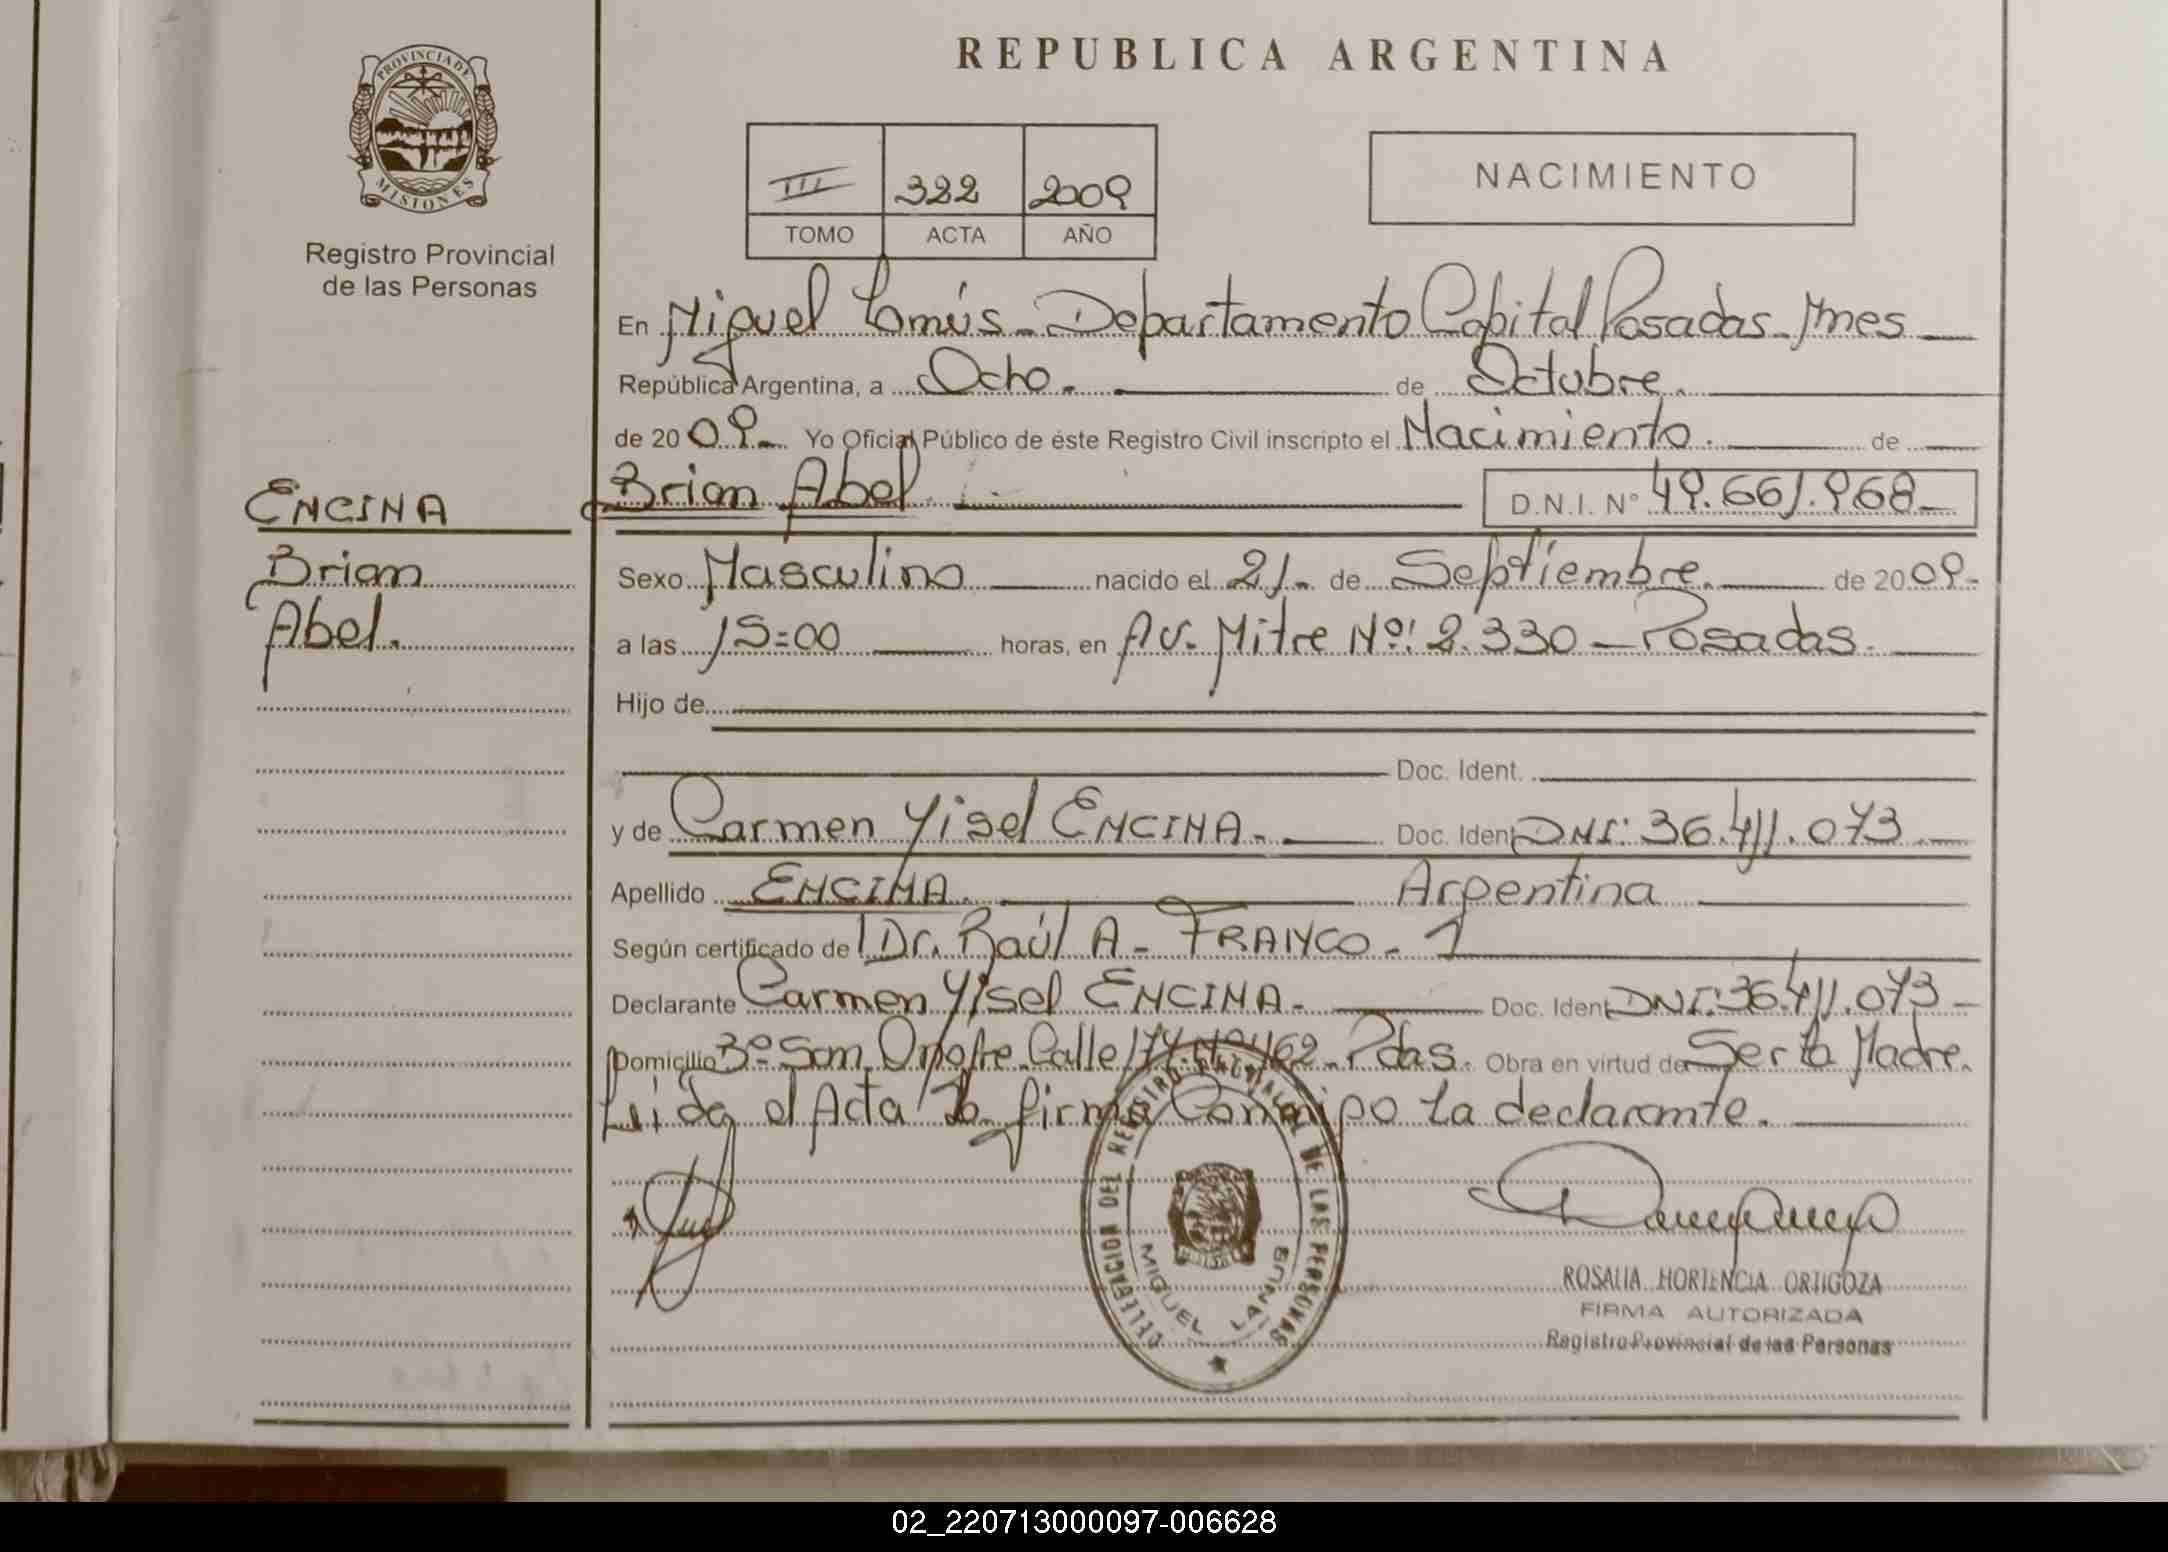 REPUBLICA ARGENTINA
PROVINCIA DE
MISIONES
Registro Provincial
de las Personas
III 322 2009
TOMO ACTA AÑO
NACIMIENTO
En Miguel Lanús - Departamento Capital Posadas - Mnes
República Argentina, a Ocho. de Octubre.
de 2009. Yo Oficial Público de éste Registro Civil inscripto el Nacimiento. de
Brian Abel. D.N.I. Nº 49.661.968
ENCINA
Brian
Abel.
Sexo Masculino nacido el 21. de Septiembre. de 2009.
a las 15:00 horas, en Av. Mitre Nº: 2.330 - Posadas.
Hijo de
Doc. Ident.
y de Carmen Yisel ENCINA. Doc. Ident DNI: 36.411.073
Apellido ENCINA. Argentina
Según certificado de Dr. Raúl A. FRANCO.
Declarante Carmen Yisel ENCINA. Doc. Ident DNI: 36.411.073
Domicilio Bº San Onofre Calle 174 Nº 462 - Pdas. Obra en virtud de Ser la Madre.
Leida el Acta la firma Conmigo la declarante.
DELEGACION DEL REGISTRO PROVINCIAL DE LAS PERSONAS
MIGUEL LANUS
ROSALIA HORTENCIA ORTIGOZA
FIRMA AUTORIZADA
Registro Provincial de las Personas
02_220713000097-006628